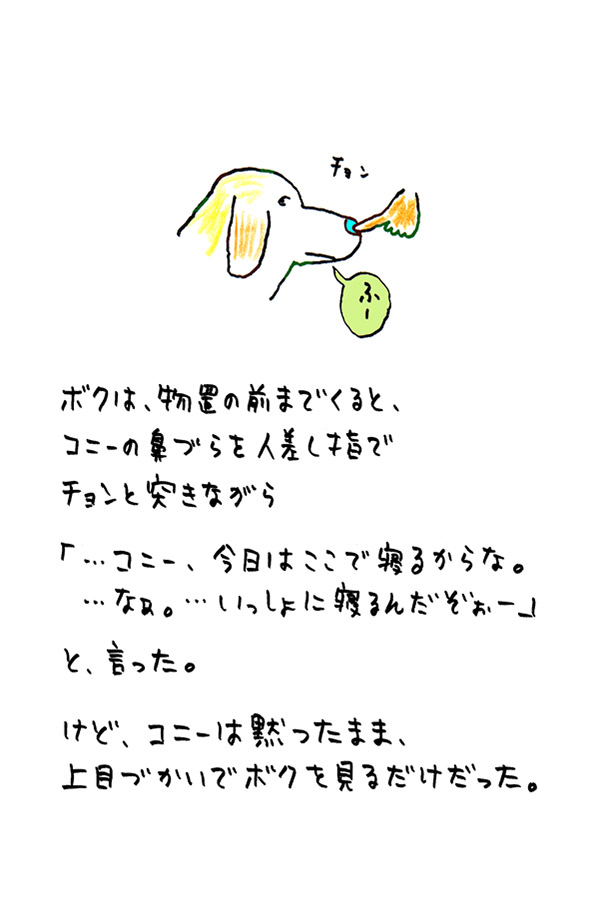 チョン
ふー
ボクは、物置の前までくると、
コニーの鼻づらを人差し指で
チョンと突きながら
「…コニー、今日はここで寝るからな。
…なぁ。…いっしょに寝るんだぞぉー」
と、言った。
けど、コニーは黙ったまま、
上目づかいでボクを見るだけだった。